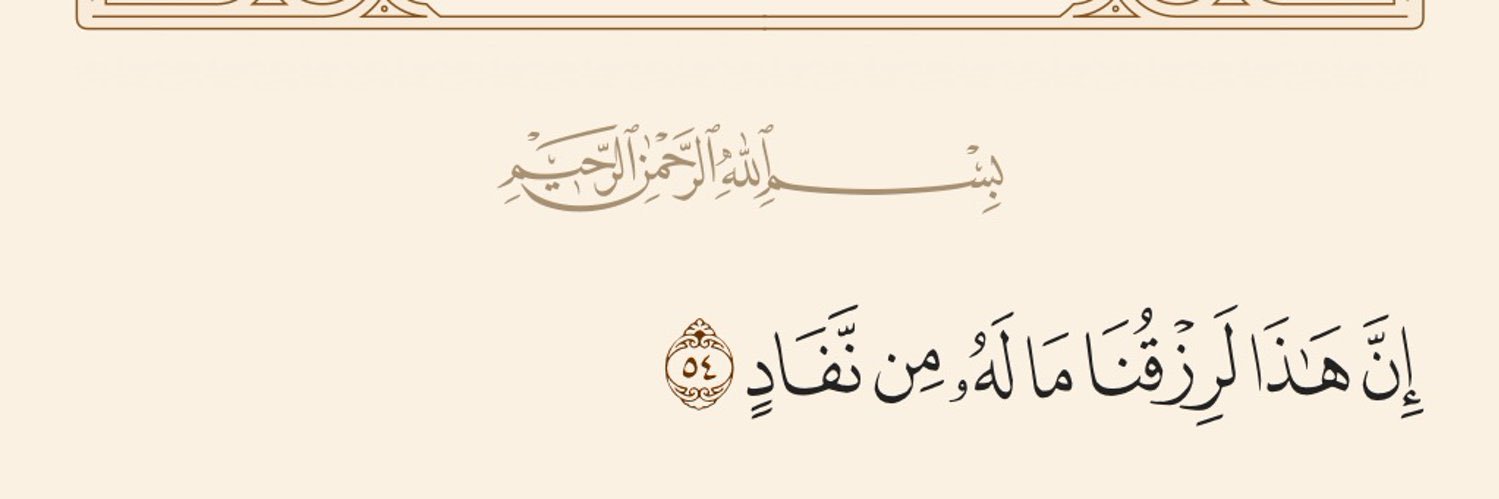 بِسْمِ ٱللَّهِ ٱلرَّحْمَٰنِ ٱلرَّحِيمِ
إِنَّ هَٰذَا لَرِزْقُنَا مَا لَهُۥ مِن نَّفَادٍ ٥٤